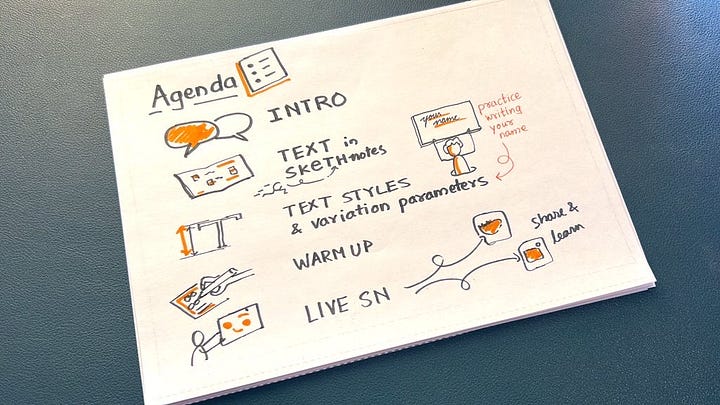 Agenda
INTRO
TEXT in
SKETHnotes
TEXT STYLES
& variation parameters
WARM UP
LIVE SN
your
name
practice
writing
your
name
share &
learn